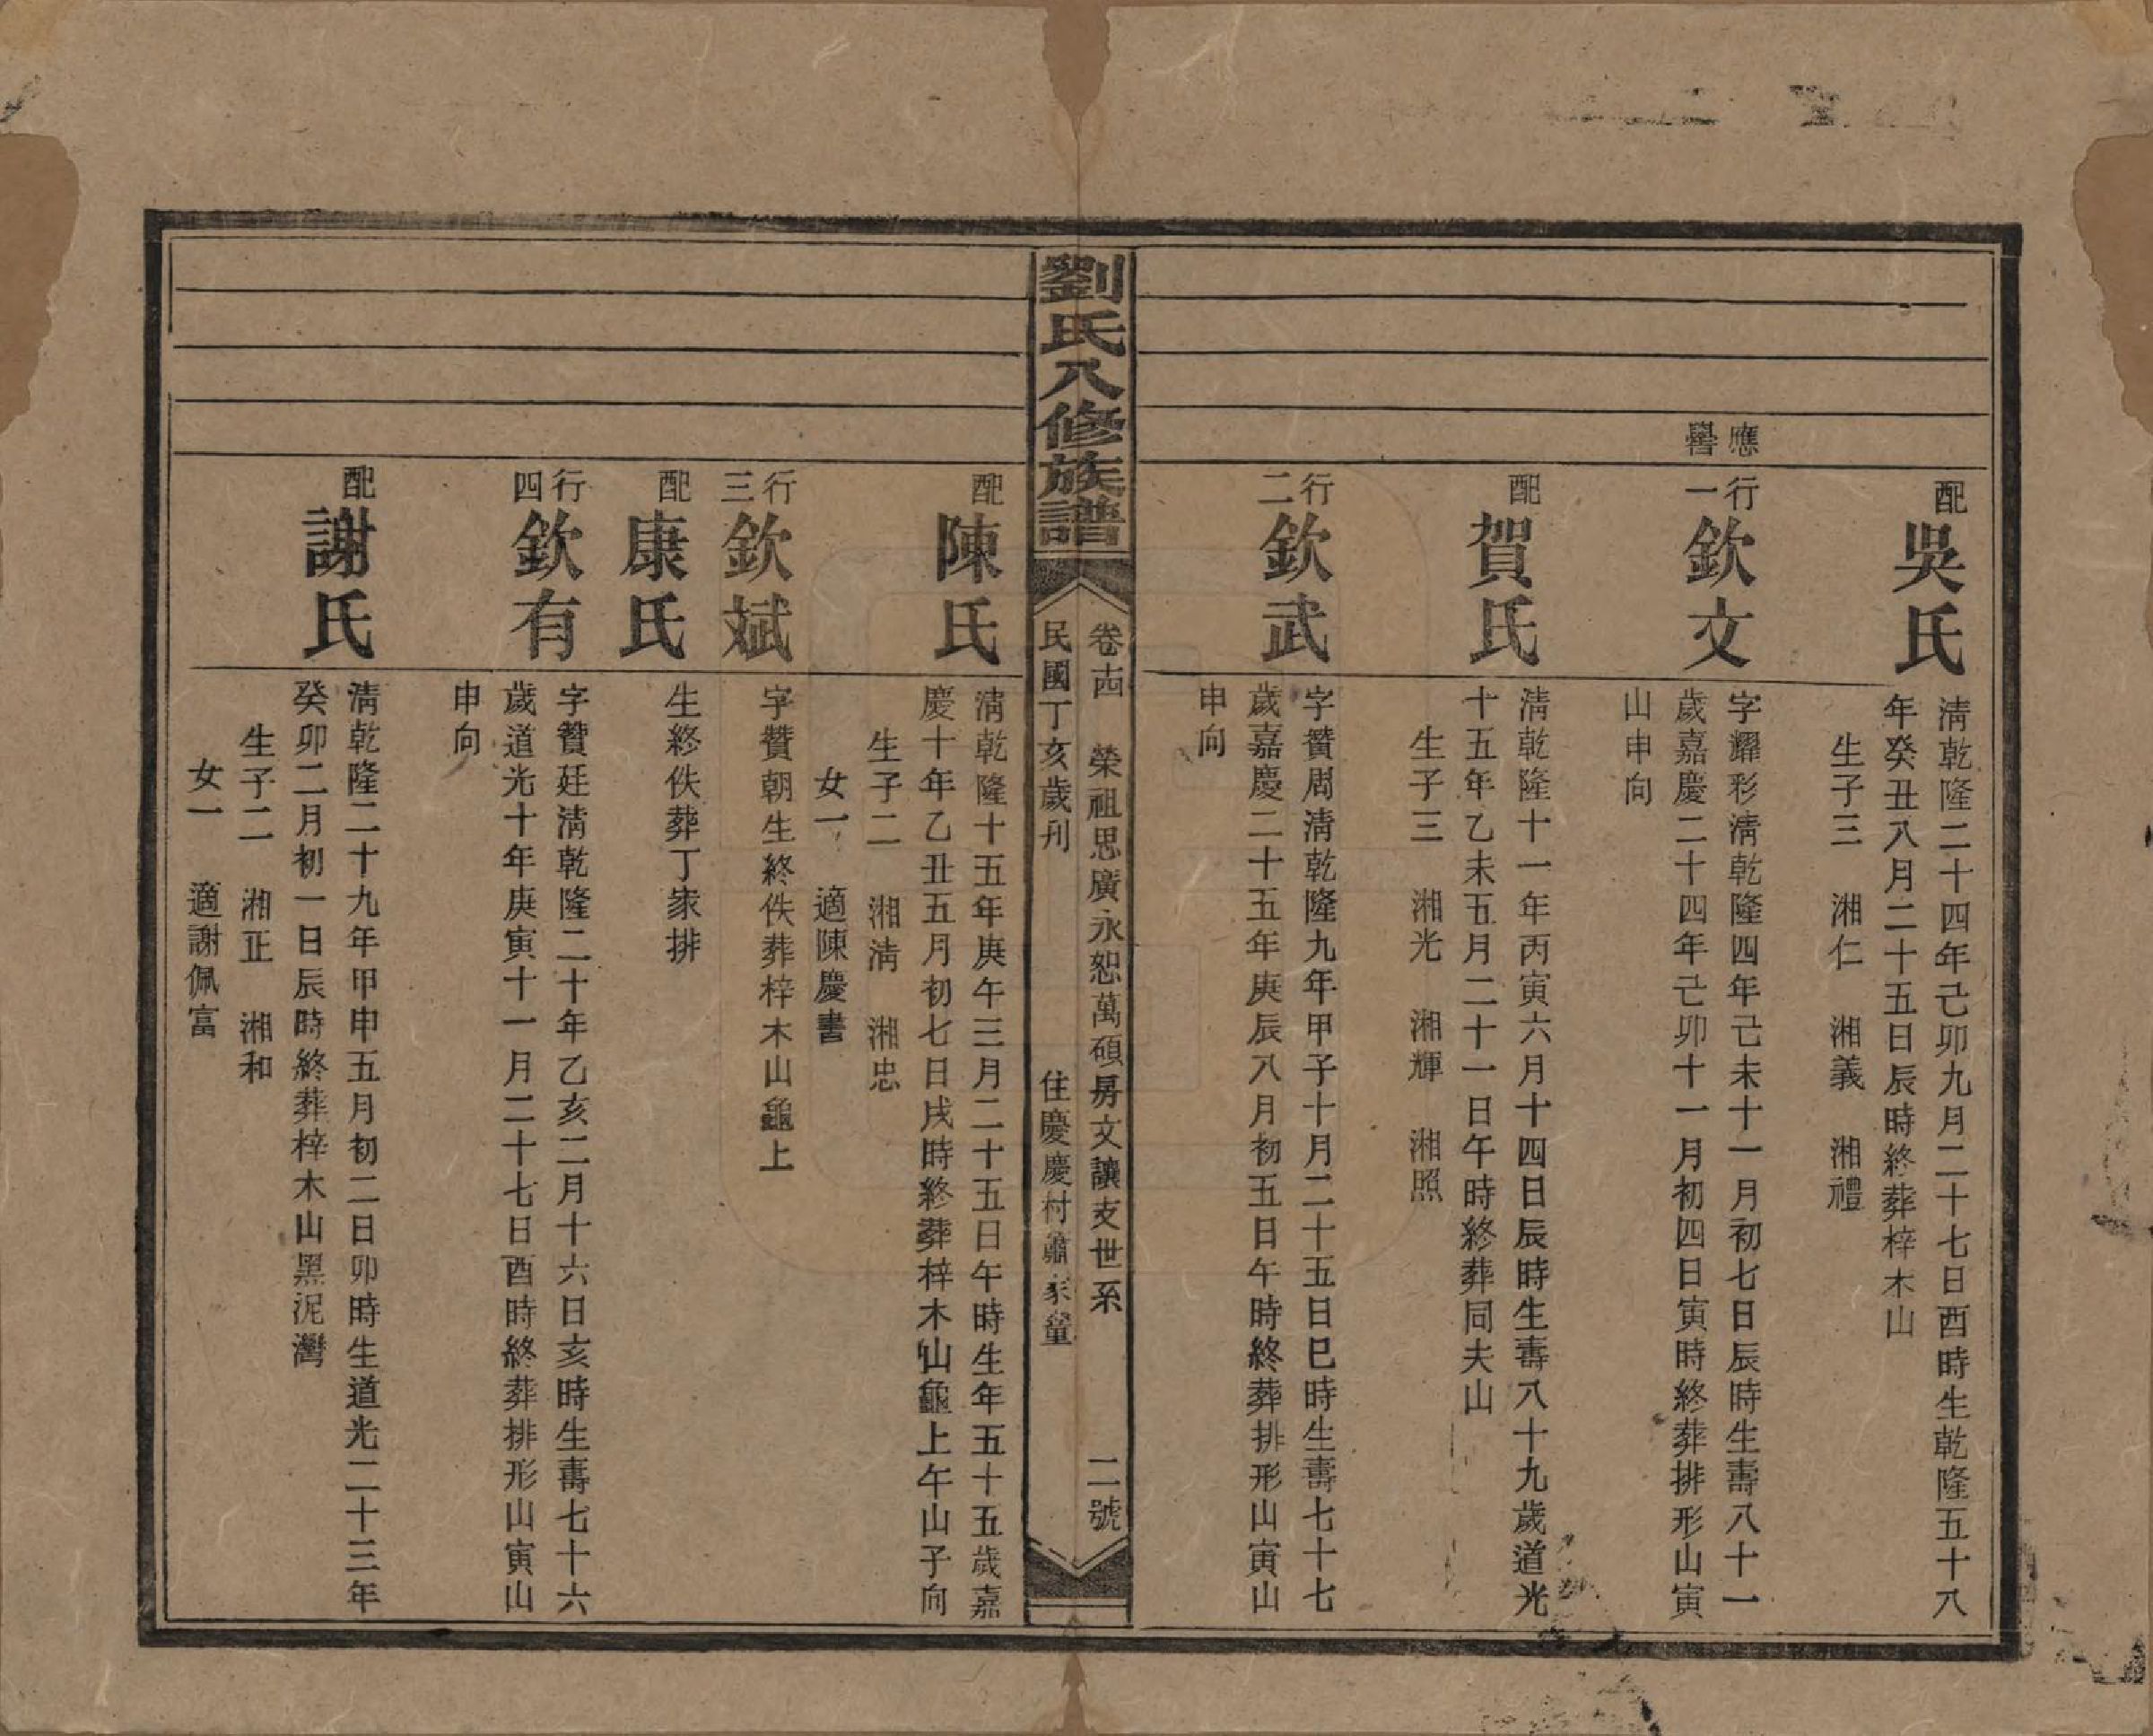 配
吳氏
淸乾隆二十四年己卯九月二十七日酉時生乾隆五十八
年癸丑八月二十五日辰時終葬梓木山
生子三　湘仁　湘義　湘禮
應
譽
行
一
欽文
字耀彩淸乾隆四年己未十一月初七日辰時生壽八十一
歲嘉慶二十四年己卯十一月初四日寅時終葬排形山寅
山申向
配
賀氏
淸乾隆十一年丙寅六月十四日辰時生壽八十九歲道光
十五年乙未五月二十一日午時終葬同夫山
生子三　湘光　湘輝　湘照
行
二
欽武
字贊周淸乾隆九年甲子十月二十五日巳時生壽七十七
歲嘉慶二十五年庚辰八月初五日午時終葬排形山寅山
申向
劉氏八修族譜
卷十四　榮祖思廣永恕萬碩房文讓支世系　二號
民國丁亥歲刊　住慶慶村蕭家
配
陳氏
淸乾隆十五年庚午三月二十五日午時生年五十五歲嘉
慶十年乙丑五月初七日戌時終葬梓木山龜上午山子向
生子二　湘淸　湘忠
女一　適陳慶書
行
三
欽斌
字贊朝生終佚葬梓木山龜上
配
康氏
生終佚葬丁家排
行
四
欽有
字贊廷淸乾隆二十年乙亥二月十六日亥時生壽七十六
歲道光十年庚寅十一月二十七日酉時終葬排形山寅山
申向
配
謝氏
淸乾隆二十九年甲申五月初二日卯時生道光二十三年
癸卯二月初一日辰時終葬梓木山黑泥灣
生子二　湘正　湘和
女一　適謝佩富